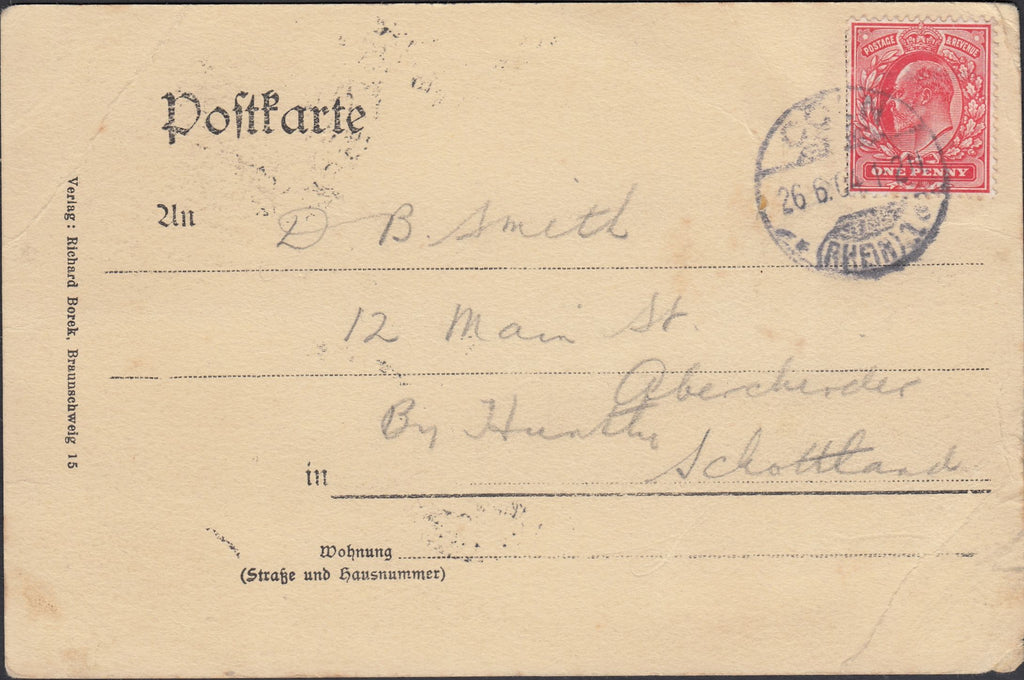 Postkarte
POSTAGE & REVENUE
ONE PENNY
26.6.0
(RHEIN) 1
An
D B. Smith
12 Main St.
Aberchirder
By Huntly
Schottland
in
Wohnung
(Straße und Hausnummer)
Verlag: Richard Borek, Braunschweig 15